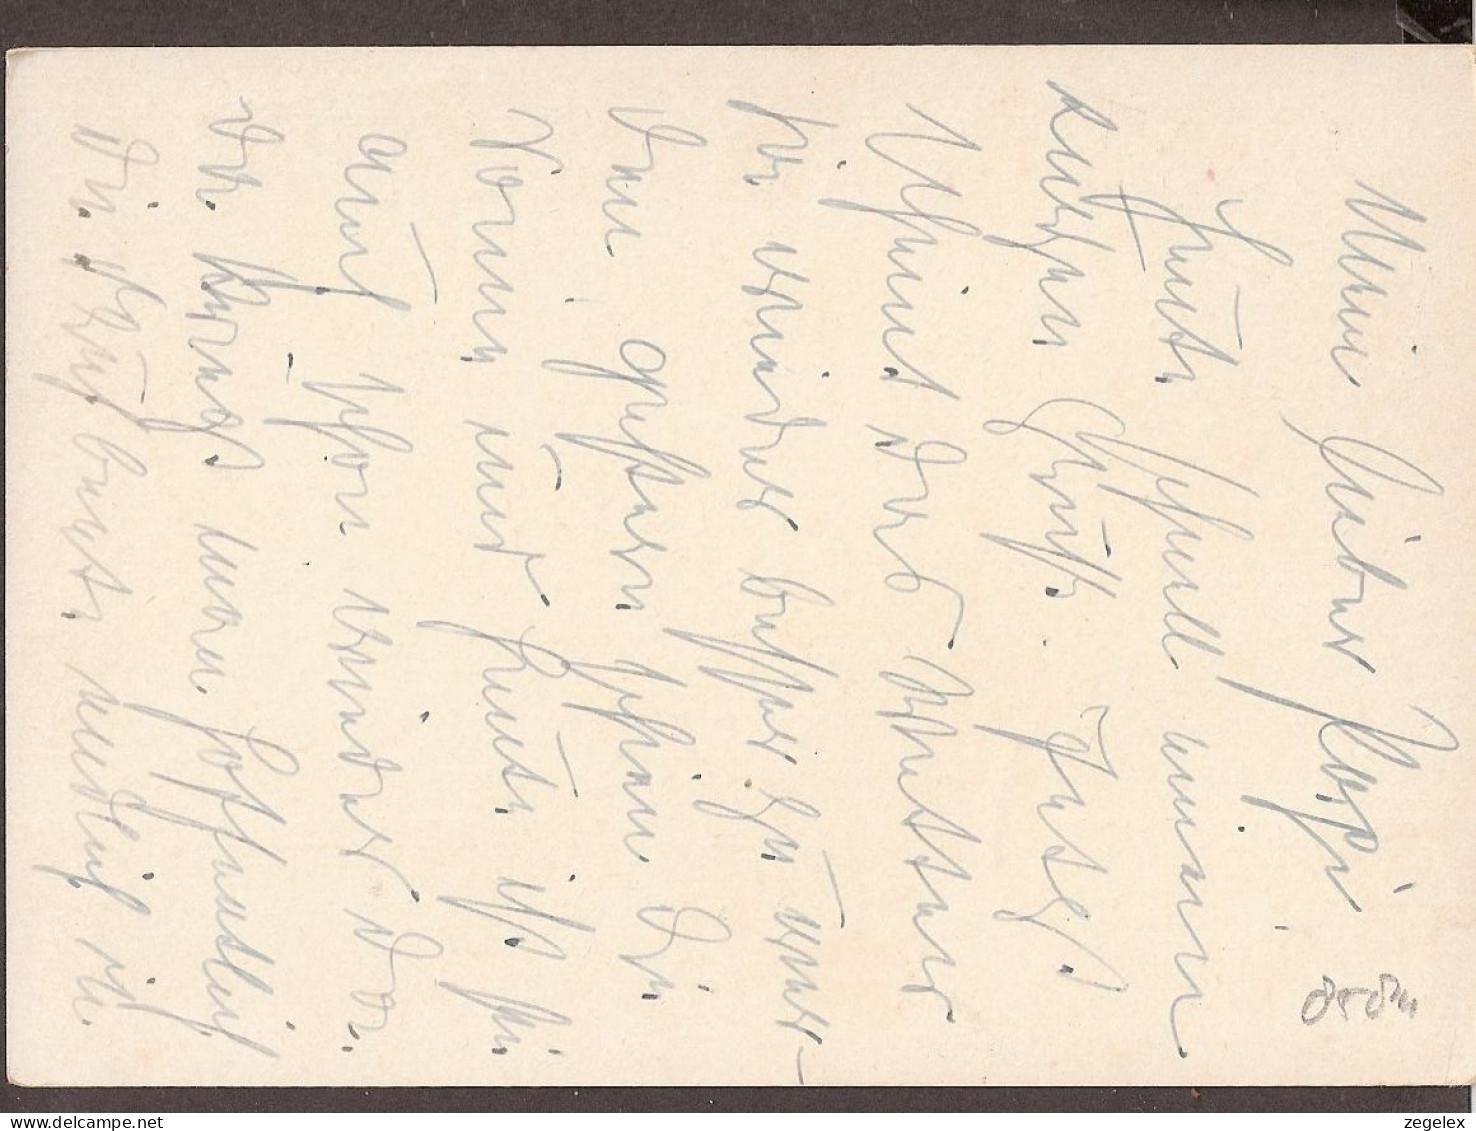 Mein lieber Kaspi
Heute schnell einen
kurzen Gruß. Jetzt
scheint das Wetter
ja wieder besser zu wer-
den, gestern schien die
Sonne und heute ist sie
auch schon wieder da.
Da kriegst man hoffentlich
die bald endlich in
zegelex